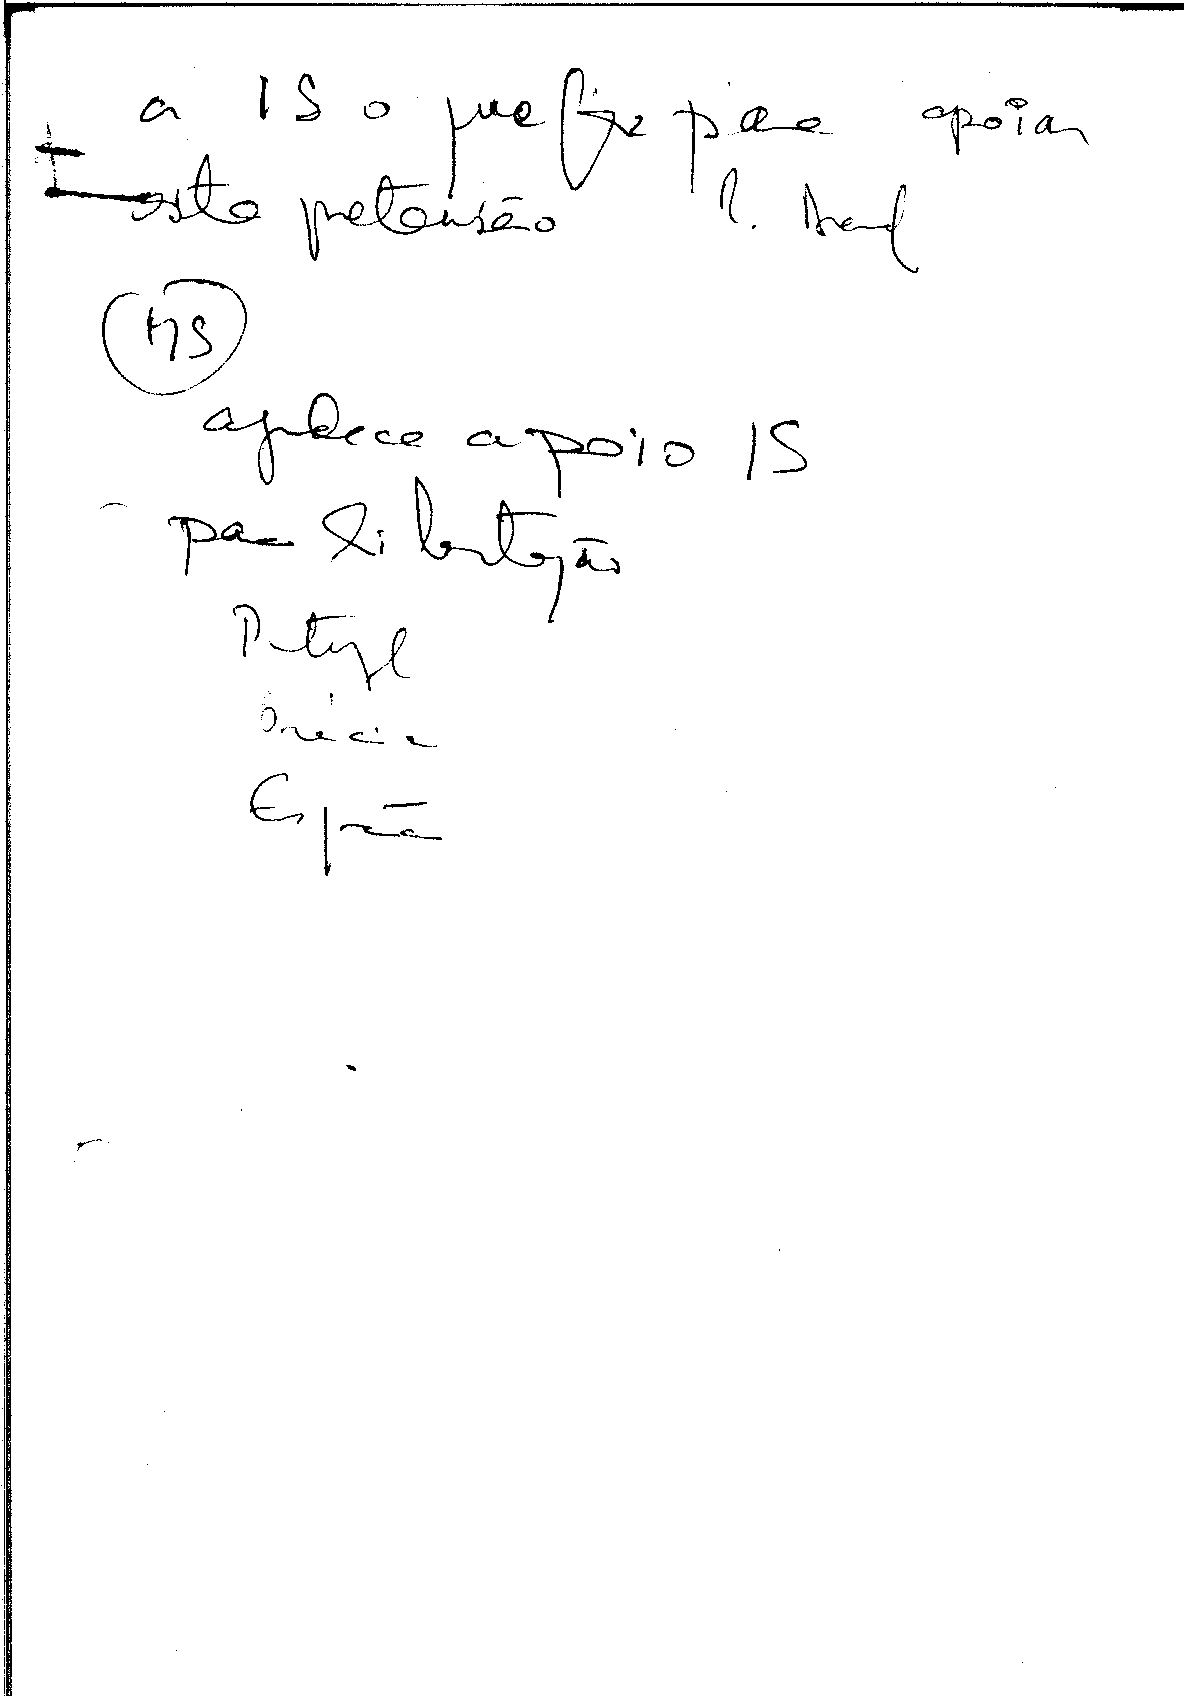 a IS o que fez para apoiar
esta pretensão R.
MS
agradece apoio IS
para Libertação
Portugal
Grécia
Espanha